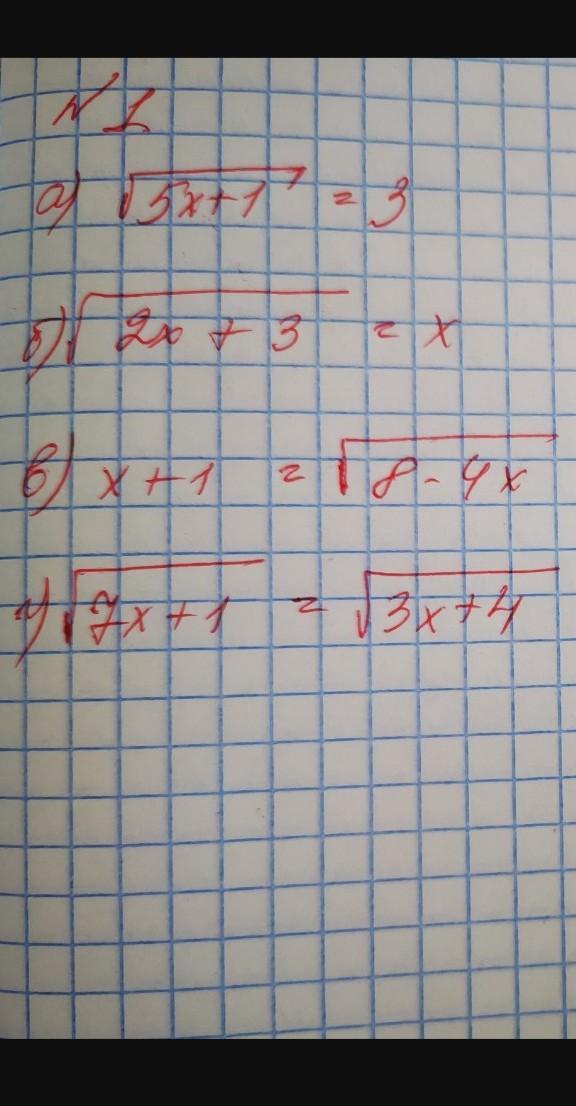 № 1
а) √5x+1 = 3
б) √2x + 3 = x
в) x + 1 = √8 - 4x
г) √7x + 1 = √3x + 4